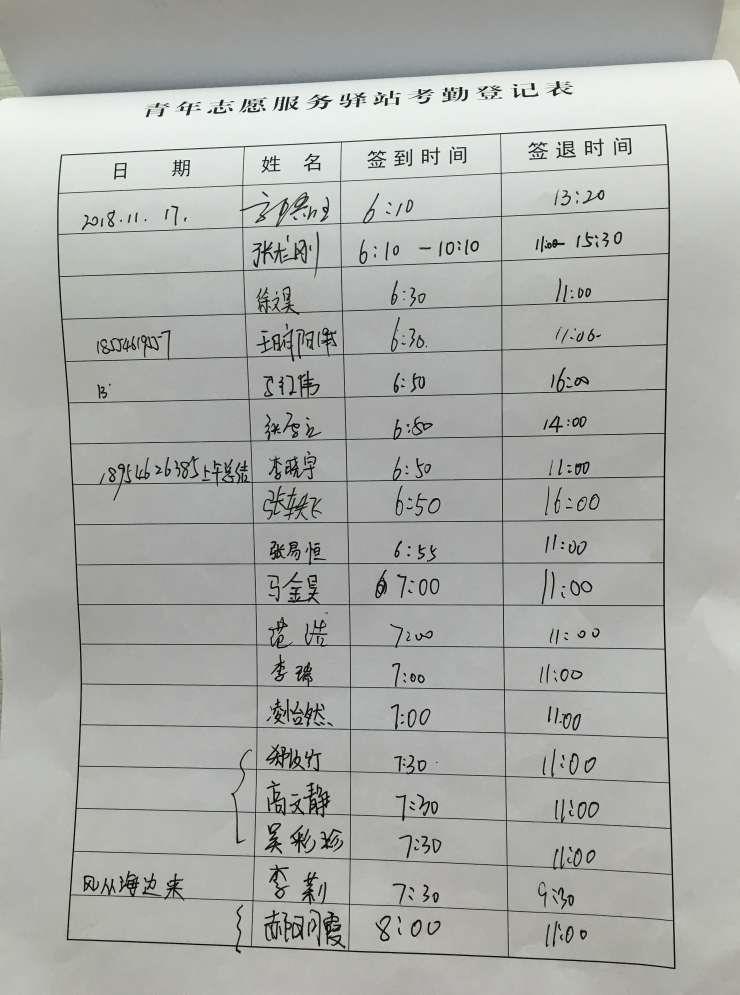 青年志愿服务驿站考勤登记表
日 期 姓 名 签到时间 签退时间
2018.11.17. 6:10 13:20
张彪刚 6:10 - 10:10 11:00 15:30
徐文昊 6:30 11:00
18554619557 6:30. 11:00
13 红伟 6:50 16:00
张 6:50 14:00
18954626385上午总结 李晓宇 6:50 11:00
张轶飞 6:50 16:00
张易恒 6:55 11:00
马金昊 7:00 11:00
范浩 7:00 11:00
李瑞 7:00 11:00
凌怡然 7:00 11:00
7:30 11:00
高文静 7:30 11:00
吴彩珍 7:30 11:00
风从海边来 李莉 7:30 9:30
霞 8:00 11:00